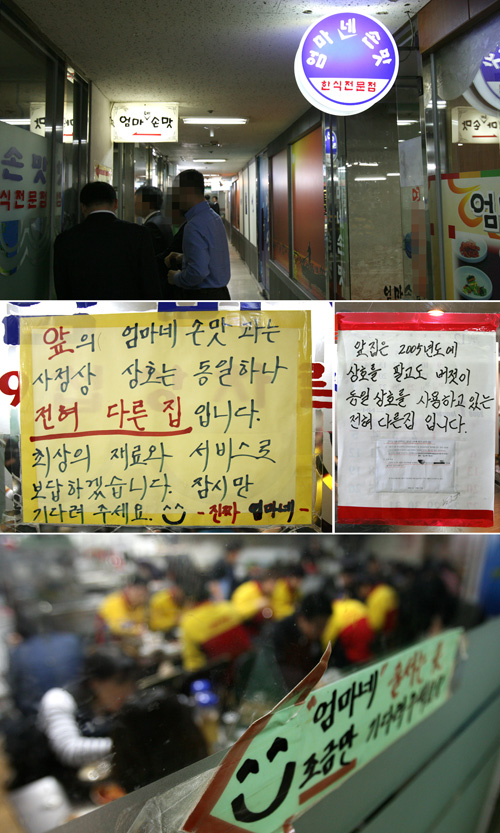 엄마네손맛
한식전문점
엄마손맛
손맛
한식전문점
앞의 엄마네 손맛 과는
사정상 상호는 동일하나
전혀 다른 집 입니다.
최상의 재료와 서비스로
보답하겠습니다. 잠시만
기다려 주세요.
- 진짜 엄마네 -
앞집은 2005년도에
상호를 팔고도 버젓이
동일 상호를 사용하고 있는
전혀 다른집 입니다.
"엄마네"
조금만 기다려주세요